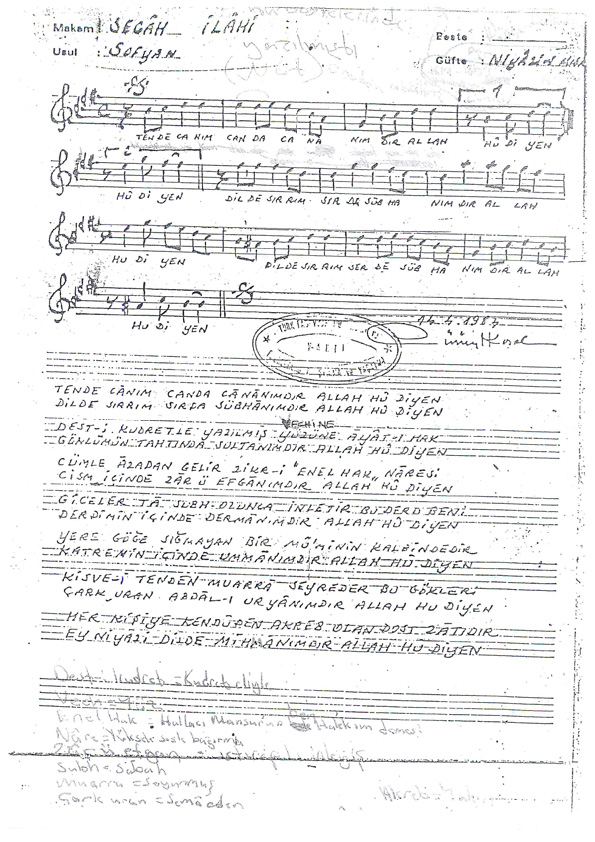 Makam : SEGÂH İLÂHİ
Beste :
Usul : SOFYAN
Güfte : NİYÂZİ
1
TEN DE CA NIM CAN DA CA NA NIM DIR AL LAH HÛ Dİ YEN
2
HÛ Dİ YEN DİL DE SIR RIM SIR DA SÜB HA NIM DIR AL LAH
HU Dİ YEN DİL DE SIR RIM SER DE SÜB HA NIM DIR AL LAH
HU Dİ YEN
14.4.1984
TENDE CÂNIM CANDA CÂNÂNIMDIR ALLAH HÛ DİYEN
DİLDE SIRRIM SIRDA SÜBHÂNIMDIR ALLAH HÛ DİYEN
VECHİNE
DEST-İ KUDRETLE YAZILMIŞ YÜZÜNE AYÂT-I HAK
GÖNLÜMÜN TAHTINDA SULTANIMDIR ALLAH HÛ DİYEN
CÜMLE ÂZADAN GELİR ZİKR-İ "ENEL HAK" NÂRESİ
CİSM İÇİNDE ZÂR Ü EFGÂNIMDIR ALLAH HÛ DİYEN
GİCELER TÂ SUBH OLUNCA İNLETİR BU DERD BENİ
DERDİMİN İÇİNDE DERMÂNIMDIR ALLAH HÛ DİYEN
YERE GÖĞE SIĞMAYAN BİR MÜ'MİNİN KALBİNDEDİR
KATREMİN İÇİNDE UMMÂNIMDIR ALLAH HÛ DİYEN
KİSVE-İ TENDEN MUARRÂ SEYREDER BU GÖKLERİ
ÇARK URAN ABDÂL-I URYÂNIMDIR ALLAH HU DİYEN
HER KİŞİYE KENDÜDEN AKREB OLAN DOST ZÂTIDIR
EY NİYAZİ DİLDE MİHMÂNIMDIR ALLAH HÛ DİYEN
Dest-i kudret = Kudret eliyle
Vech = Yüz
Enel Hak = Hallacı Mansurun Hakkım demesi
Nâre = Yüksek sesle bağırma
Subh = Sabah
Muarra = Soyunmuş
Çark uran = Semâ eden